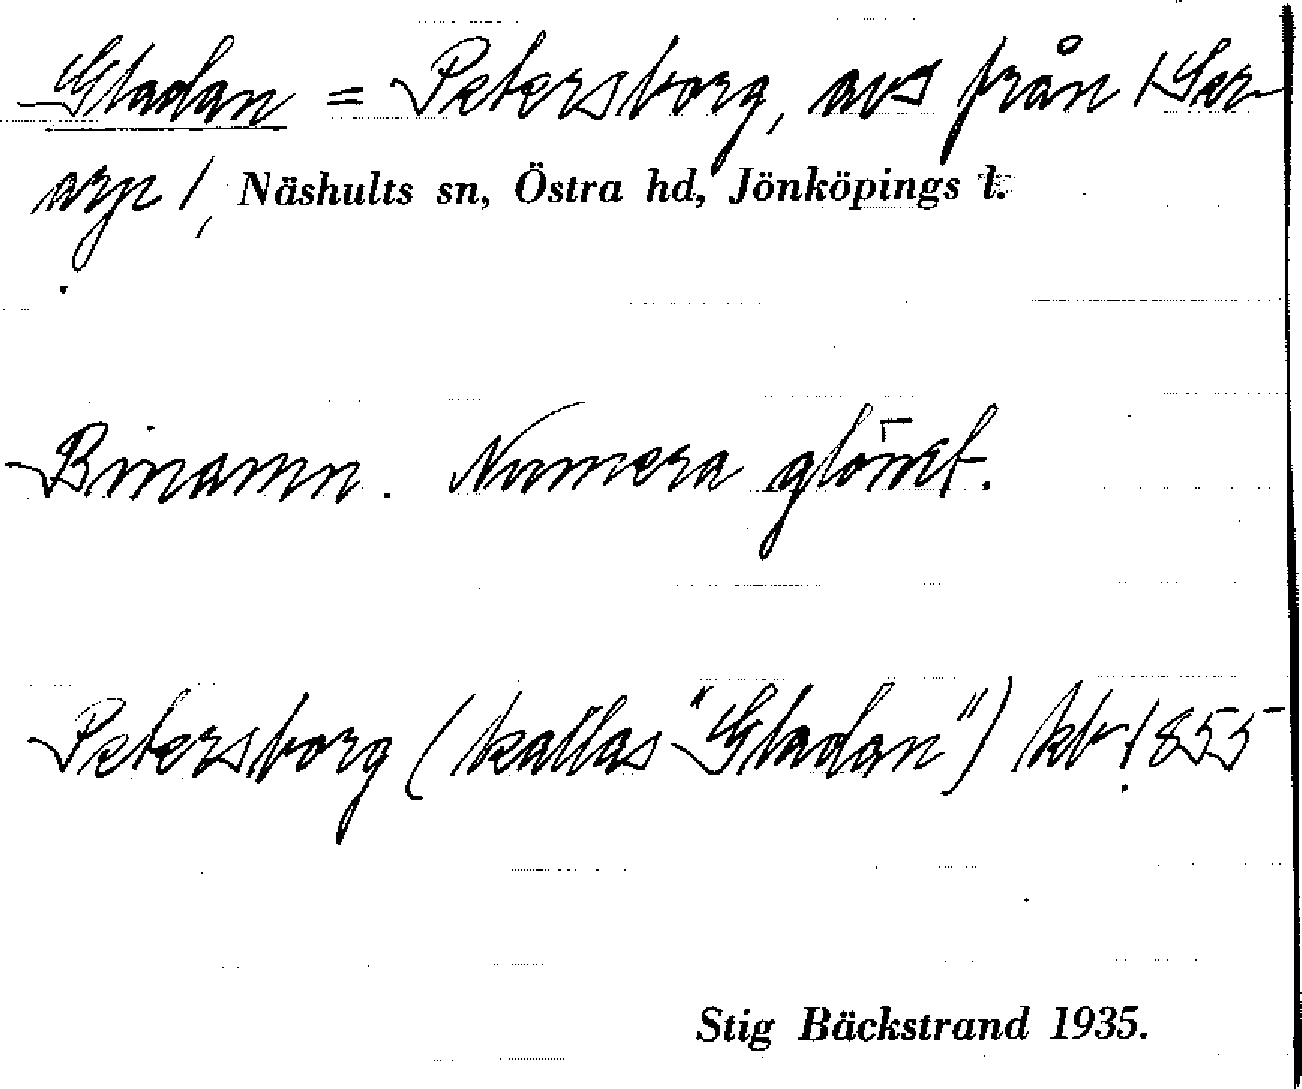 Gladan = Petersborg, avs från 1 Ser-
arp 1, Näshults sn, Östra hd, Jönköpings l.
Binamn. Numera glömt.
Petersborg (kallas "Gladan") kb 1855
Stig Bäckstrand 1935.